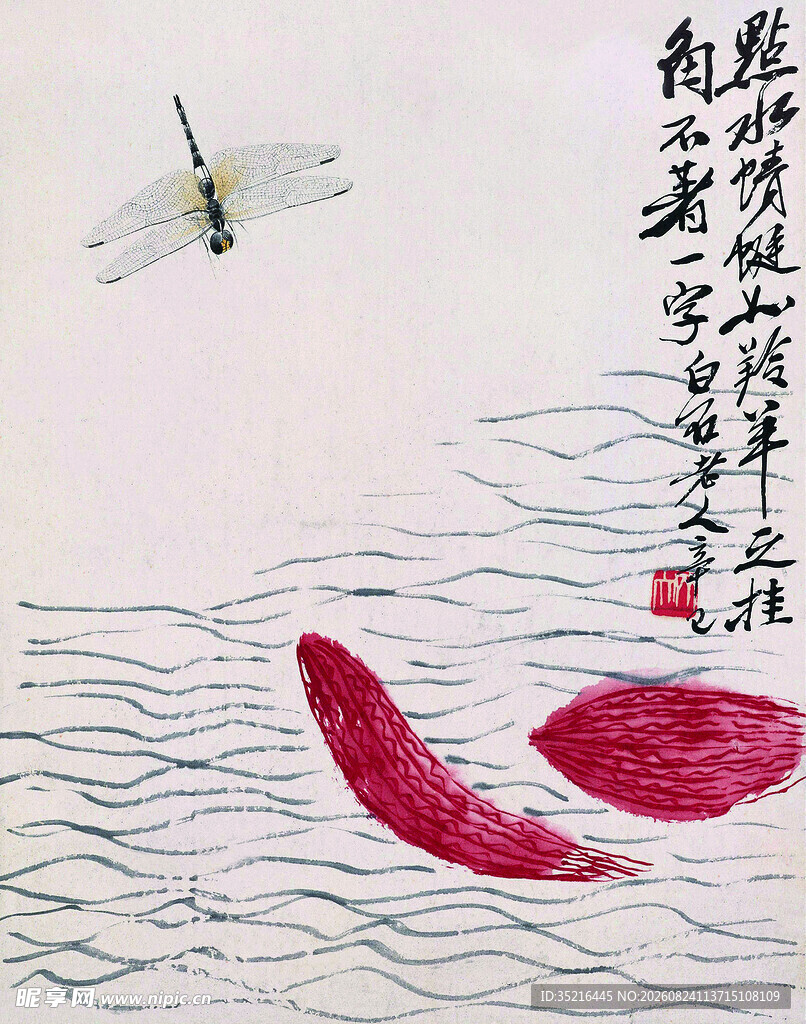 點水蜻蜓如羚羊之挂
角不著一字
白石老人辛巳
昵享网 www.nipic.cn
ID:35216445 NO:20260824113715108109